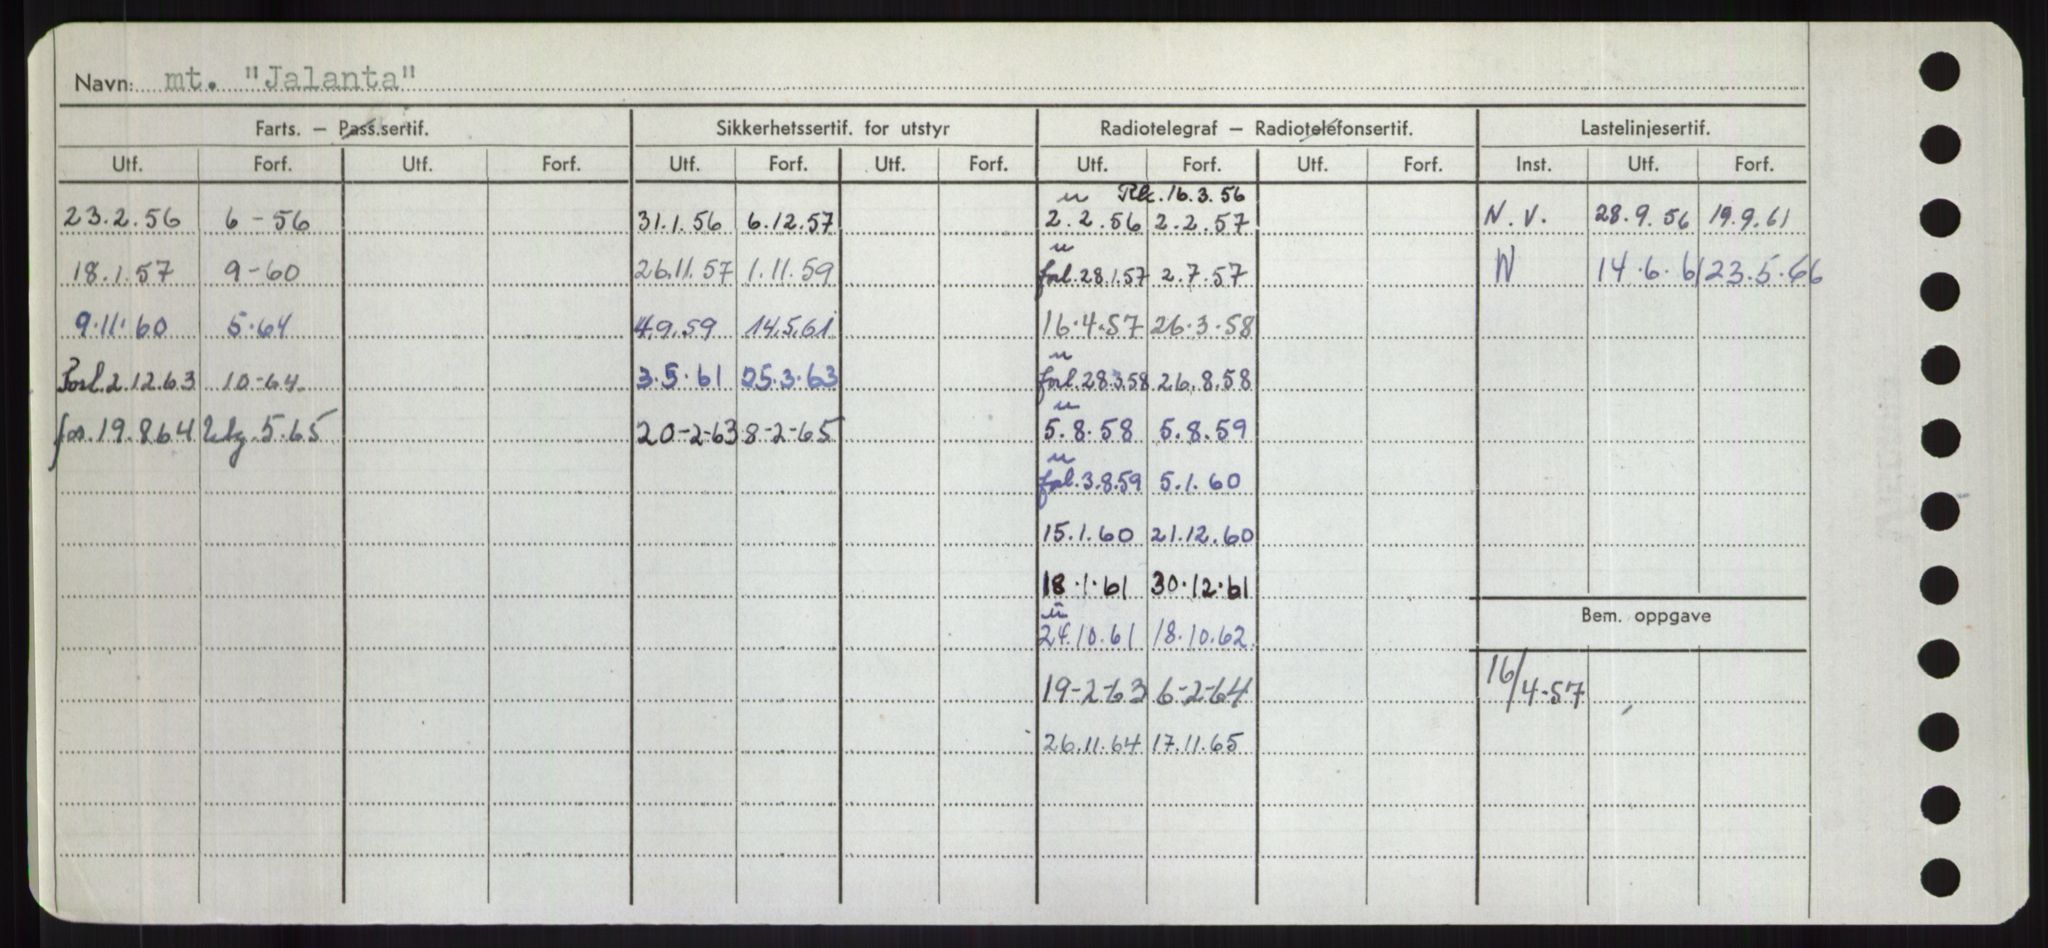 Navn: mt. "Jalanta"
Farts. – Pass.sertif. Sikkerhetssertif. for utstyr Radiotelegraf – Radiotelefonsertif. Lastelinjesertif.
Utf. Forf. Utf. Forf. Utf. Forf. Utf. Forf. Utf. Forf. Utf. Forf. Inst. Utf. Forf.
u 16.3.56
23.2.56 6-56 31.1.56 6.12.57 2.2.56 2.2.57 N.V. 28.9.56 19.9.61
u
18.1.57 9-60 26.11.57 1.11.59 forl. 28.1.57 2.7.57 N 14.6.61 23.5.66
9.11.60 5.64 4.9.59 14.5.61 16.4.57 26.3.58
u
Forl. 2.12.63 10-64 3.5.61 25.3.63 forl. 28.3.58 26.8.58
u
for. 19.8.64 5.65 20-2-63 8-2-65 5.8.58 5.8.59
u
forl. 3.8.59 5.1.60
15.1.60 21.12.60
18.1.61 30.12.61
Bem. oppgave
u
24.10.61 18.10.62
19-2-63 6-2-64 16/4-57
26.11.64 17.11.65